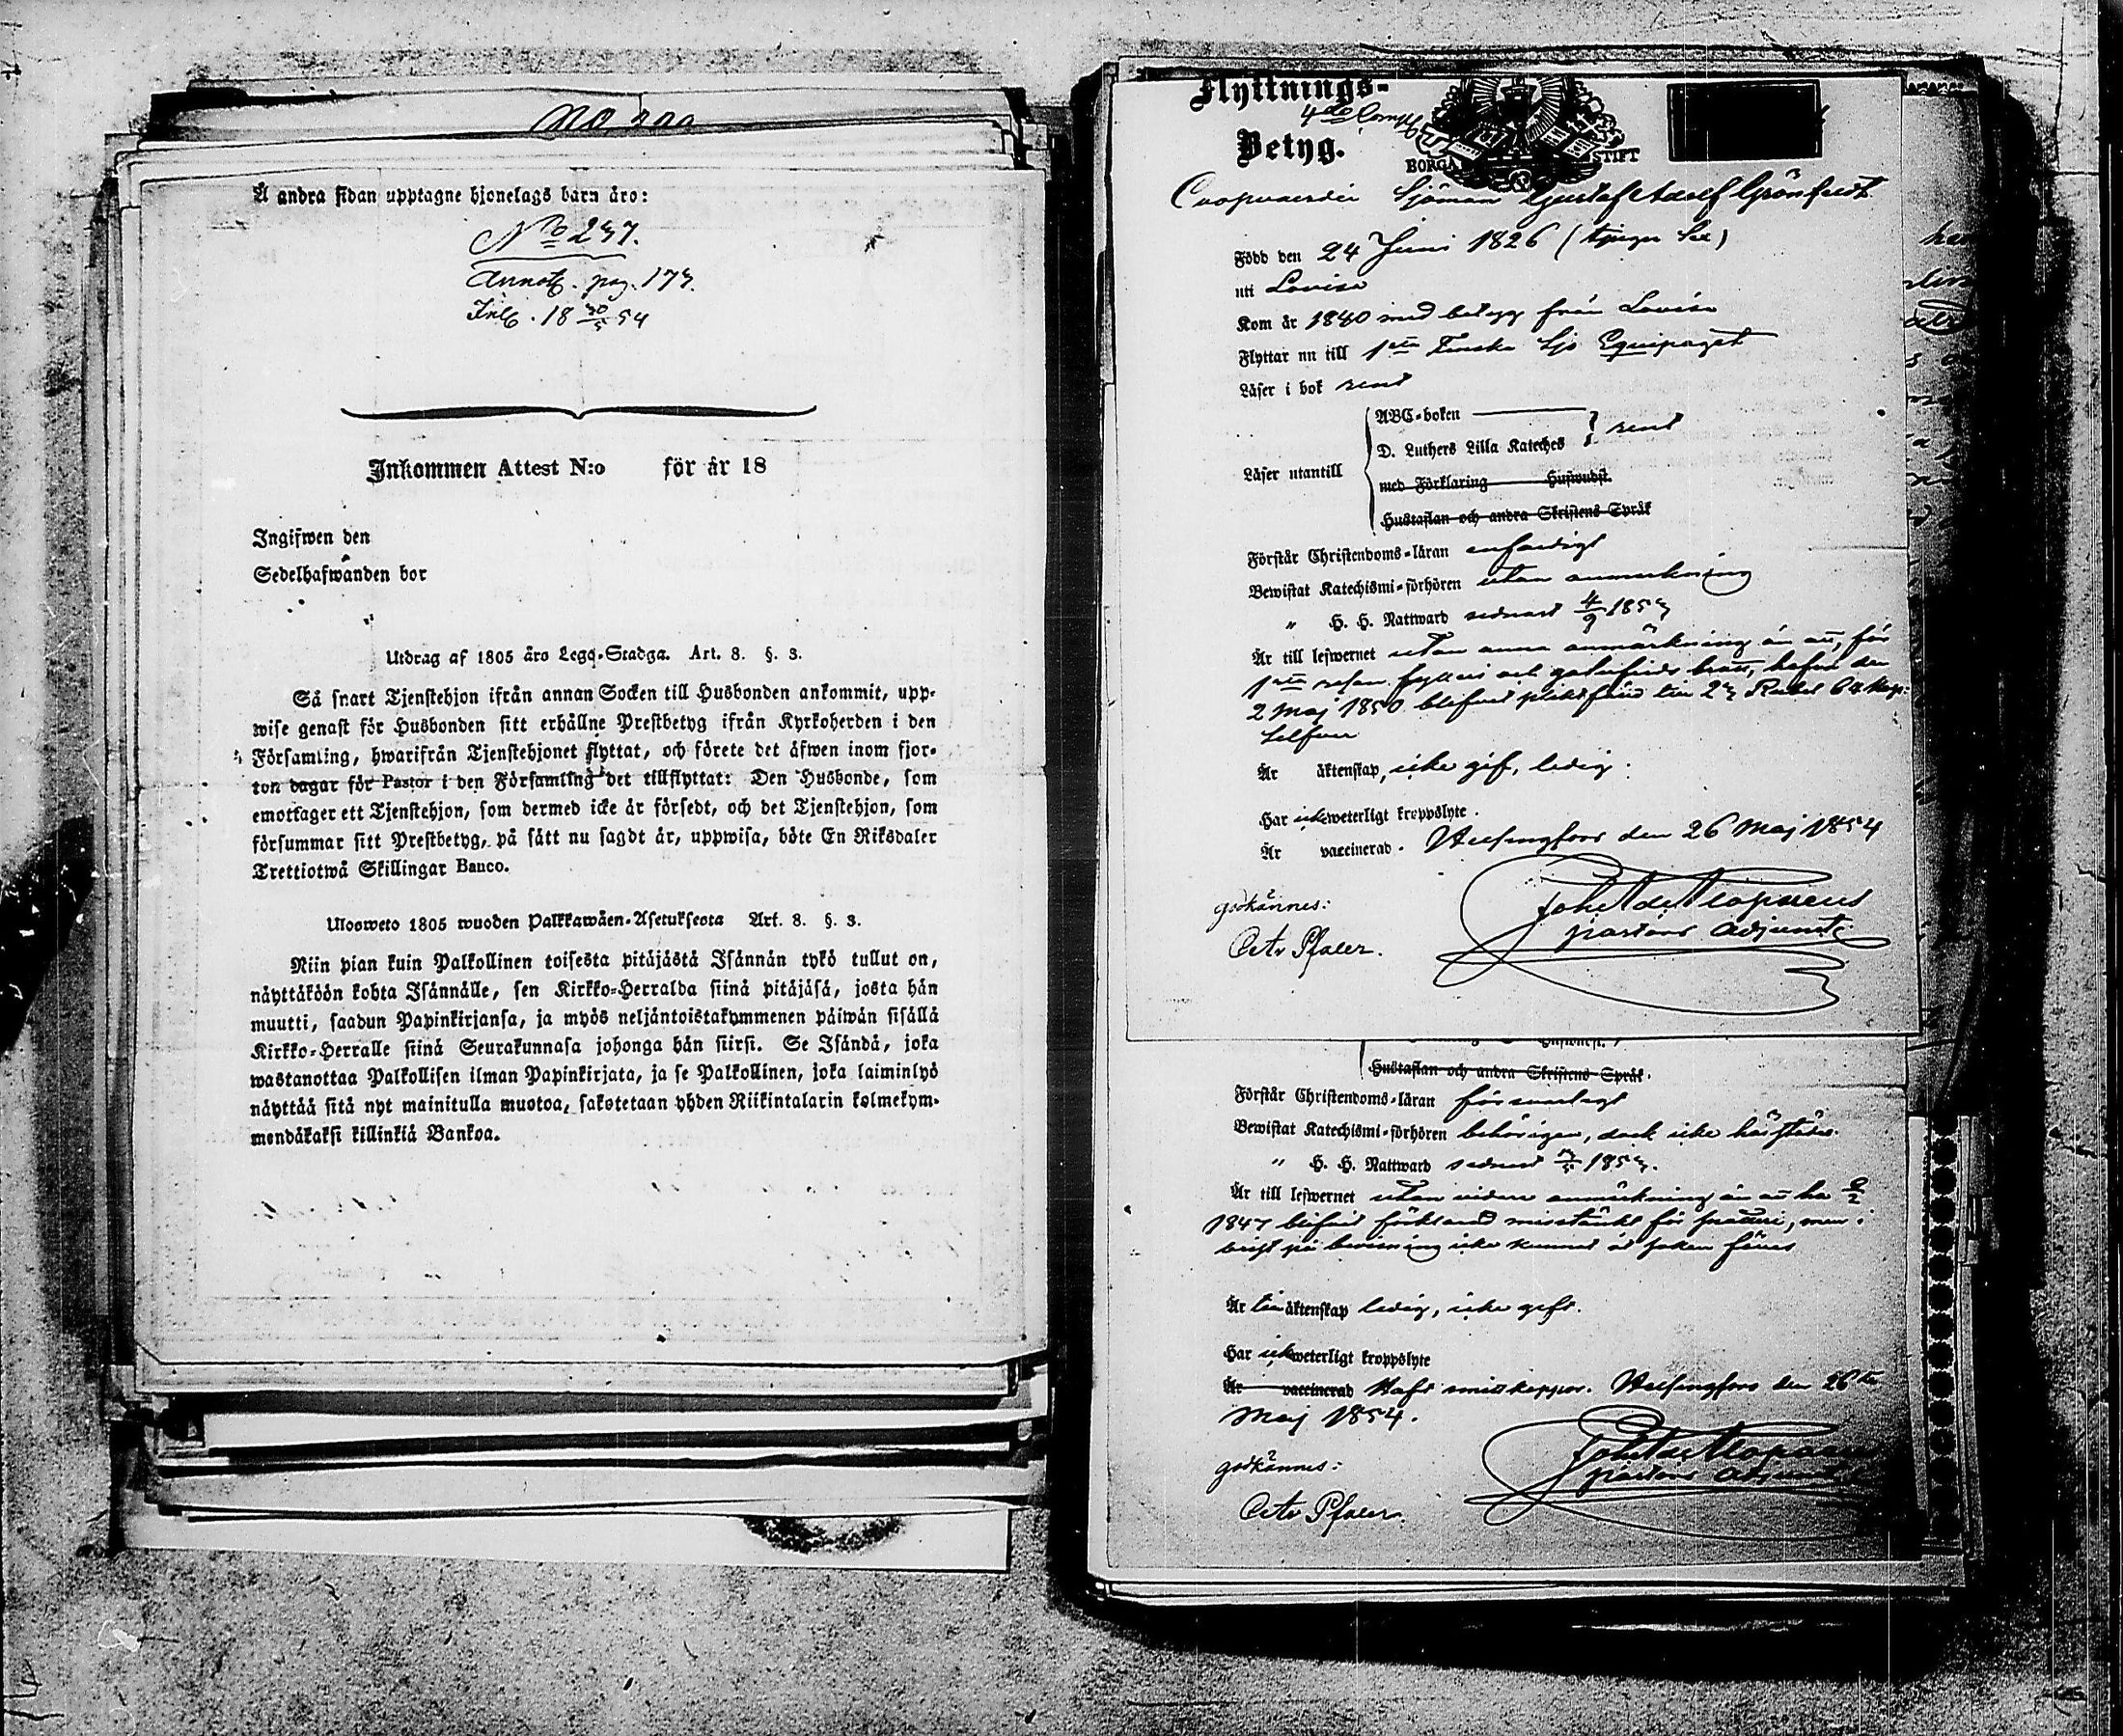 Å andra sidan upptagne hjonelags barn äro:
No 237.
Annot. pag. 173.
Inl. 18 30/5 54
Inkommen Attest N:o för år 18
Ingifwen den
Sedelhafwanden bor
Utdrag af 1805 års Lego-Stadga. Art. 8. §. 3.
Så snart Tjenstehjon ifrån annan Socken till Husbonden ankommit, upp-
wise genast för Husbonden sitt erhållne Prestbetyg ifrån Kyrkoherden i den
Församling, hwarifrån Tjenstehjonet flyttat, och förete det äfwen inom fjor-
ton dagar för Pastor i den Församling det tillflyttat: Den Husbonde, som
emottager ett Tjenstehjon, som dermed icke är försedt, och det Tjenstehjon, som
försummar sitt Prestbetyg, på sätt nu sagdt är, uppwisa, böte En Riksdaler
Trettiotwå Skillingar Banco.
Ulosweto 1805 wuoden Palkkawäen-Asetuksesta Art. 8. §. 3.
Niin pian kuin Palkollinen toisesta pitäjästä Isännän tykö tullut on,
näyttäköön kohta Isännälle, sen Kirkko-Herralda siinä pitäjäsä, josta hän
muutti, saadun Papinkirjansa, ja myös neljäntoistakymmenen päiwän sisällä
Kirkko-Herralle siinä Seurakunnasa johonga hän siirsi. Se Isändä, joka
wastanottaa Palkollisen ilman Papinkirjata, ja se Palkollinen, joka laiminlyö
näyttää sitä nyt mainitulla muotoa, sakotetaan yhden Riikintalarin kolmekym-
mendäkaksi killinkiä Bankoa.
Flyttnings-
4de Comp
Betyg.
BORGÅ STIFT
Sjöman Gustaf Adolf Grönqvist
Född den 24 Juni 1826
uti Lovisa
Kom år 1840 med betyg från Lovisa
Flyttar nu till 1sta Finska Sjö Equipaget
Läser i bok rent
ABC-boken
D. Luthers Lilla Kateches } rent
Läser utantill
med Förklaring Huswudst.
Hustaflan och andra Skriftens Språk
Förstår Christendoms-läran enfaldigt
Bewistat Katechismi-förhören utan anmärkning
" H. H. Nattward sednast 4/9 1853
Är till lefwernet utan annan anmärkning än att, för
1sta resan fylleri och gatufrids brott, hafva den
2 Maj 1850 blifvit pliktfäld till 23 Rubel 64 Kop.
Silfver
Är äktenskap, icke gift, ledig.
Har icke weterligt kroppslyte.
Är vaccinerad. Helsingfors den 26 Maj 1854
godkännes:
pastors Adjunct.
Hustaflan och andra Skriftens Språk.
Förstår Christendoms-läran försvarligt
Bewistat Katechismi-förhören behörigen, dock icke härstädes
" H. H. Nattward sednast 1853.
Är till lefwernet utan vidare anmärkning än att ha
1847 blifvit förklarad misstänkt för snatteri, men i
brist på bevisning icke kunnat åt saken fällas
Är till äktenskap ledig, icke gift.
Har icke weterligt kroppslyte
Är vaccinerad Haft smittkoppor. Helsingfors den 26te
Maj 1854.
godkännes:
pastors Adjunct